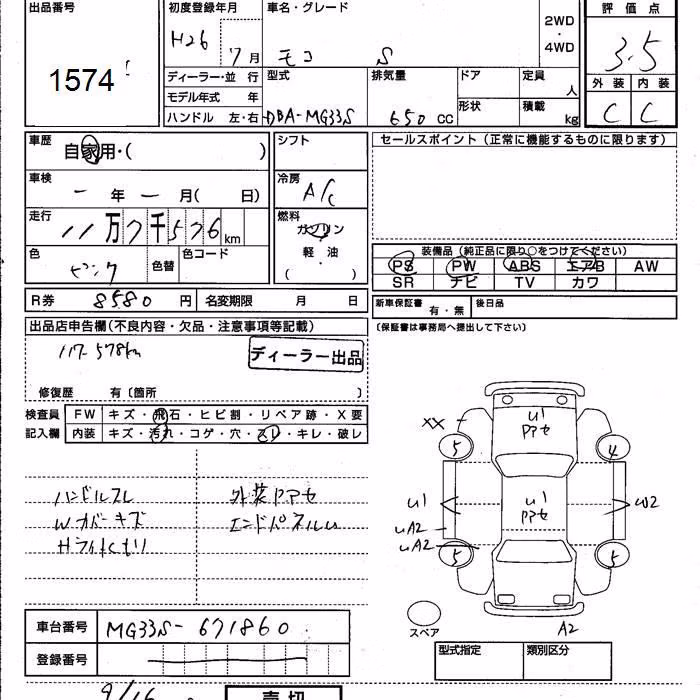 出品番号
1574
初度登録年月
H26 7月
車名・グレード
モコ S
2WD
・
4WD
評価点
3.5
外装 内装
C C
ディーラー・並行
モデル年式 年
ハンドル 左・右
型式
DBA-MG33S
排気量
650 cc
ドア
定員
人
形状
積載
kg
車歴
自家用・( )
車検
ー 年 ー 月( 日)
走行
11万7千576km
色
ピンク
色替
色コード
シフト
冷房
A/C
燃料
ガソリン
軽油
( ・ )
セールスポイント(正常に機能するものに限ります)
装備品(純正品に限り○をつけてください)
PS PW ABS エアB AW
SR ナビ TV カワ
R券 8580 円 名変期限 月 日
新車保証書 有・無 後日品
(保証書は事務局へ提出して下さい)
出品店申告欄(不良内容・欠品・注意事項等記載)
117-578km
ディーラー出品
修復歴 有〔箇所 〕
検査員 FW キズ・飛石・ヒビ割・リペア跡・X要
記入欄 内装 キズ・汚れ・コゲ・穴・スレ・キレ・破レ
ハンドルスレ 外装ワアセ
Wオバーキズ エンドパネルu
Hライトくもり
U1
ワアセ
XX
5 4
U1
U1
ワアセ
W2
UA2
UA2
5 5
スペア
A2
車台番号 MG33S-671860
登録番号
型式指定 類別区分
9/16
売切